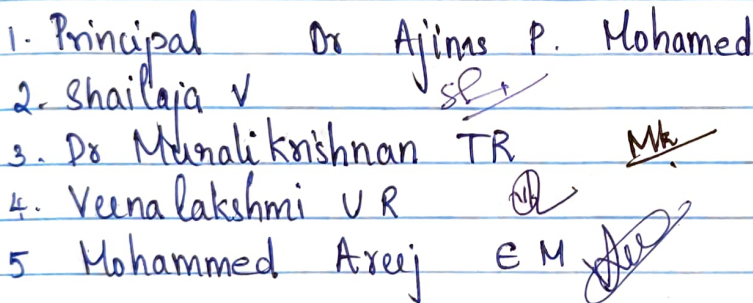 1. Principal Dr Ajims P. Mohamed
2. Shailaja V
3. Dr Muralikrishnan TR
4. Veenalakshmi V R
5 Mohammed Areej E M